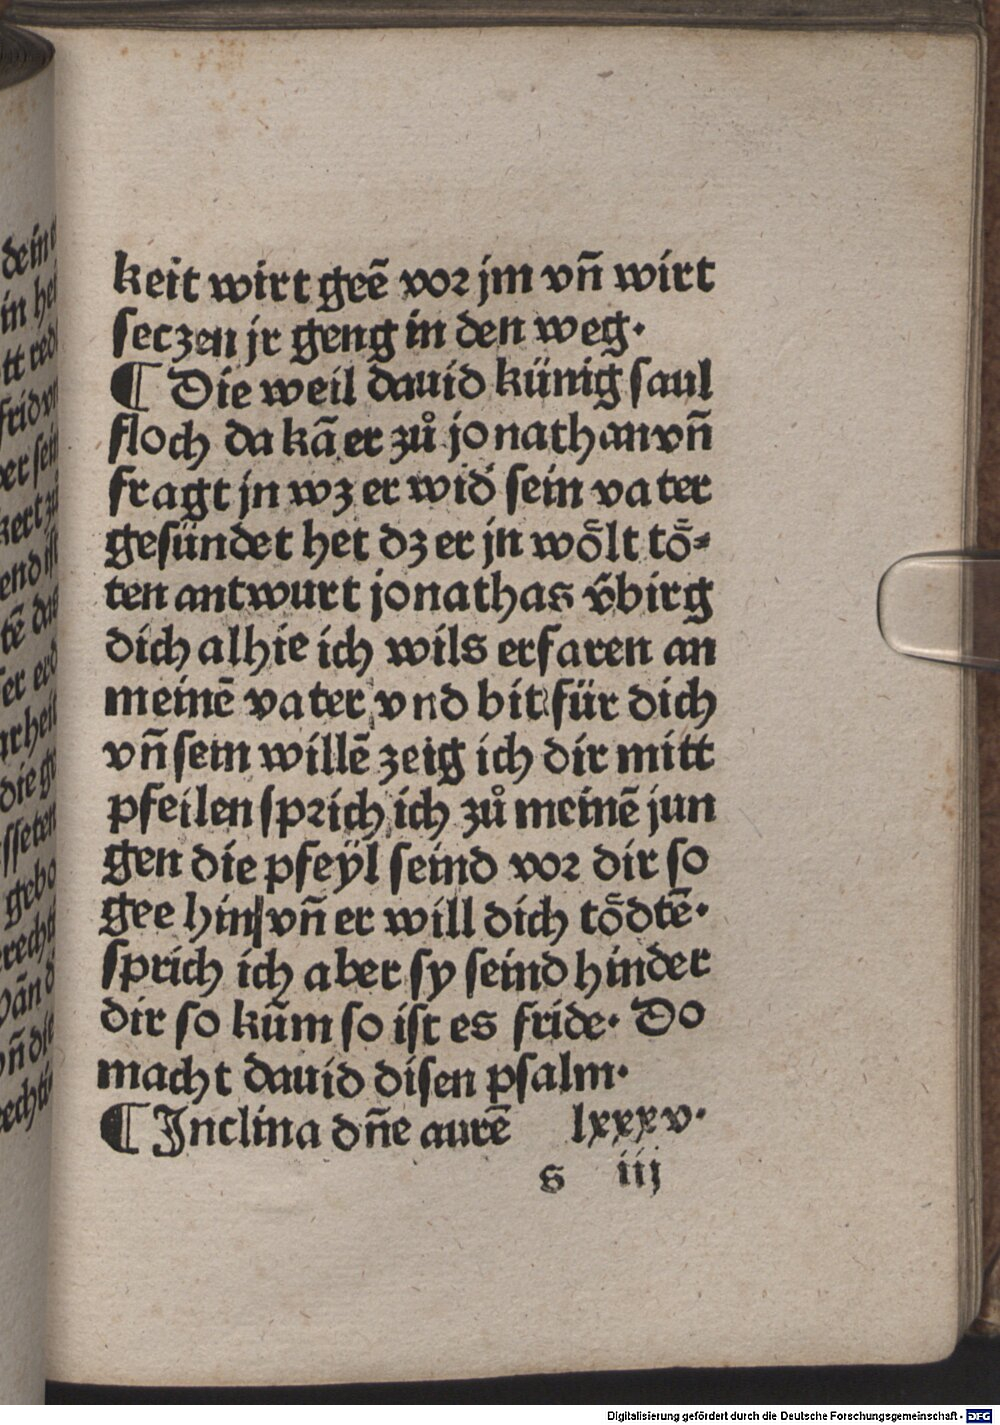 keit wirt geē vor jm vñ wirt
seczen jr geng in den weg·
¶ Die weil dauid künig saul
floch da kā er zů jonathan vñ
fragt jn wz er wid̕ sein vater
gesündet het dz er jn wo᷆lt to᷆⸗
ten antwurt jonathas v̄birg
dich alhie ich wils erfaren an
meinē vater vnd bit für dich
vñ sein willē zeig ich dir mitt
pfeilen sprich ich zů meinē jun
gen die pfeÿl seind vor dir so
gee hin vñ er will dich to᷆dtē·
sprich ich aber sy seind hinder
dir so kūm so ist es fride· Do
macht dauid disen psalm·
¶ Inclina dñe aurē lxxxv·
s iij
Digitalisierung gefördert durch die Deutsche Forschungsgemeinschaft - DFG